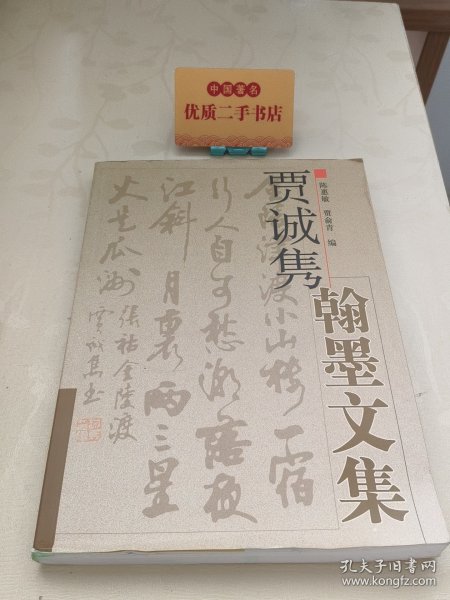 中国著名
优质二手书店
陈惠敏 贾俞青 编
贾诚隽
翰墨文集
金陵津渡小山楼一宿
行人自可愁潮落夜
江斜月裏两三星
火是瓜洲
张祜金陵渡
贾诚隽书
孔夫子旧书网
www.kongfz.com